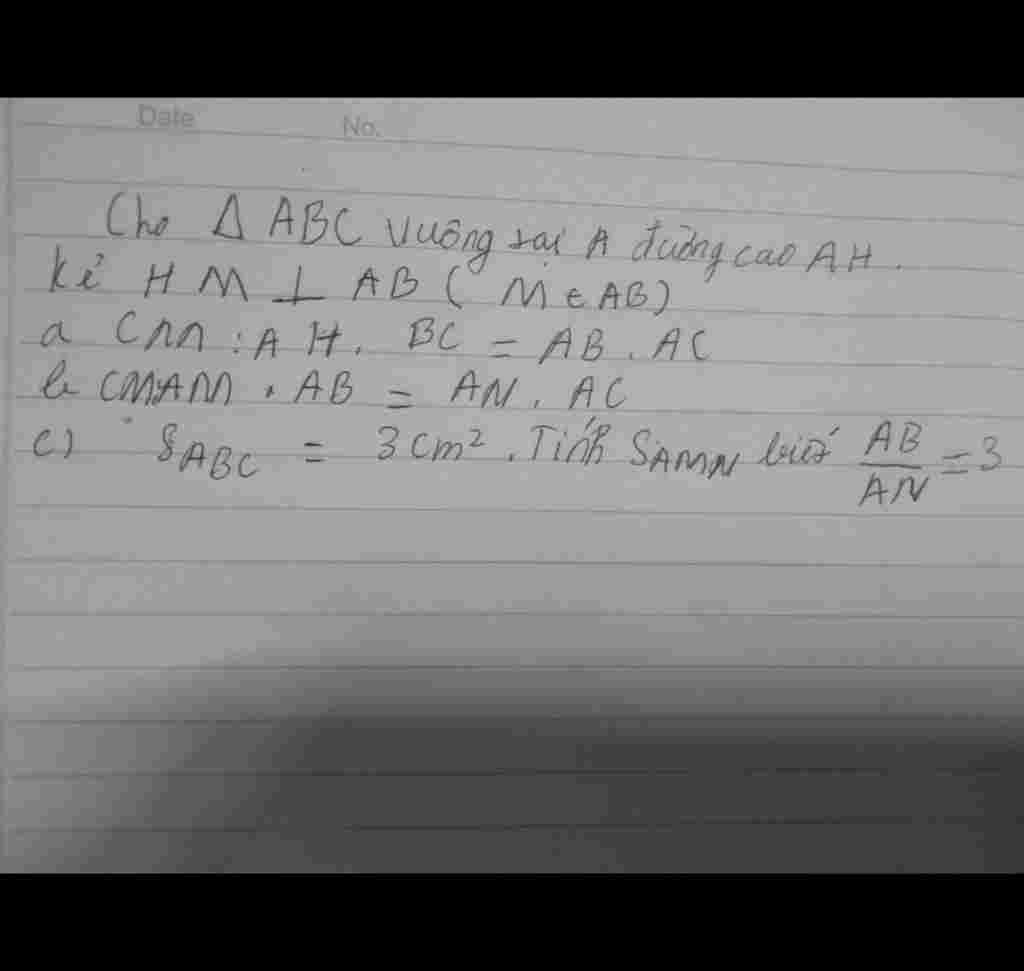 Date No.
Cho Δ ABC vuông tại A đường cao AH.
Kẻ HM ⊥ AB ( M ∈ AB)
a CMR : AH. BC = AB . AC
b CM:AM . AB = AN . AC
c) S_ABC = 3cm². Tính S_AMN biết AB/AN = 3